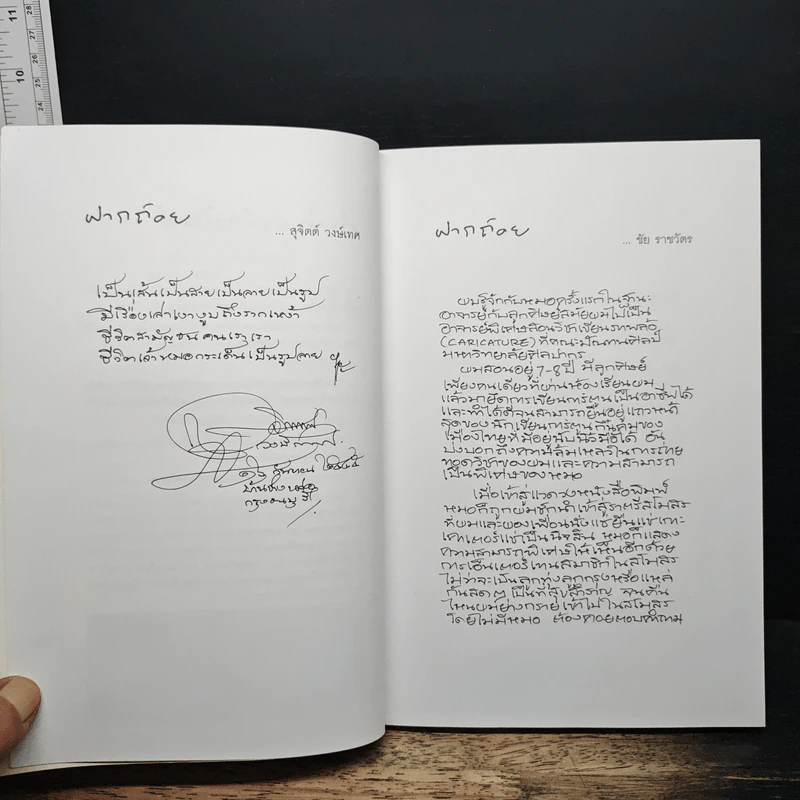 11
10
28
27
26
25
24
ฝากถ้อย
... สุจิตต์ วงษ์เทศ
เป็นเส้นเป็นสายเป็นลายเป็นรูป
มีเรื่องเล่าเงาอูบถึงรากเหง้า
ชีวิตสามัญชนคนเราเรา
ชีวิตเจ้าหมอกระเด็นเป็นรูปลาย
๑๖ กันยายน ๒๕๔๕
บ้านช่างหล่อ
กรุงธนบุรี
ฝากถ้อย
... ชัย ราชวัตร
ผมรู้จักกับหมอครั้งแรกในฐานะ
อาจารย์กับลูกศิษย์สมัยผมไปเป็น
อาจารย์พิเศษสอนวิชาเขียนภาพล้อ
(CARICATURE) ที่คณะมัณฑนศิลป์
มหาวิทยาลัยศิลปากร
ผมสอนอยู่ 7-8 ปี มีลูกศิษย์
เพียงคนเดียวที่ผ่านห้องเรียนผม
แล้วมายึดการเขียนการ์ตูนเป็นอาชีพได้
และทำได้ดีจนสามารถยืนอยู่แถวหน้า
สุดของนักเขียนการ์ตูนกันคุมของ
เมืองไทยที่มีอยู่นับนิ้วมือได้ อัน
บ่งบอกถึงความล้มเหลวในการถ่าย
ทอดวิชาของผมและความสามารถ
เป็นพิเศษของหมอ
เมื่อเข้าสู่แวดวงหนังสือพิมพ์
หมอก็ถูกผมชักนำเข้าสู่ราตรีสโมสร
ที่ผมและผองเพื่อนนั่งแช่ยืนแช่เกาะ
เคาเตอร์แช่เป็นนิจสิน หมอก็แสดง
ความสามารถพิเศษให้เห็นอีกด้วย
การเอ็นเตอร์เทนสมาชิกในสโมสร
ไม่ว่าจะเป็นลูกทุ่งลูกกรุงหรือแหล่
กันสดๆ เป็นที่สุขสำราญ จนคืน
ไหนผมย่างกรายเข้าไปในสโมสร
โดยไม่มีหมอ ต้องคอยตอบคำถาม